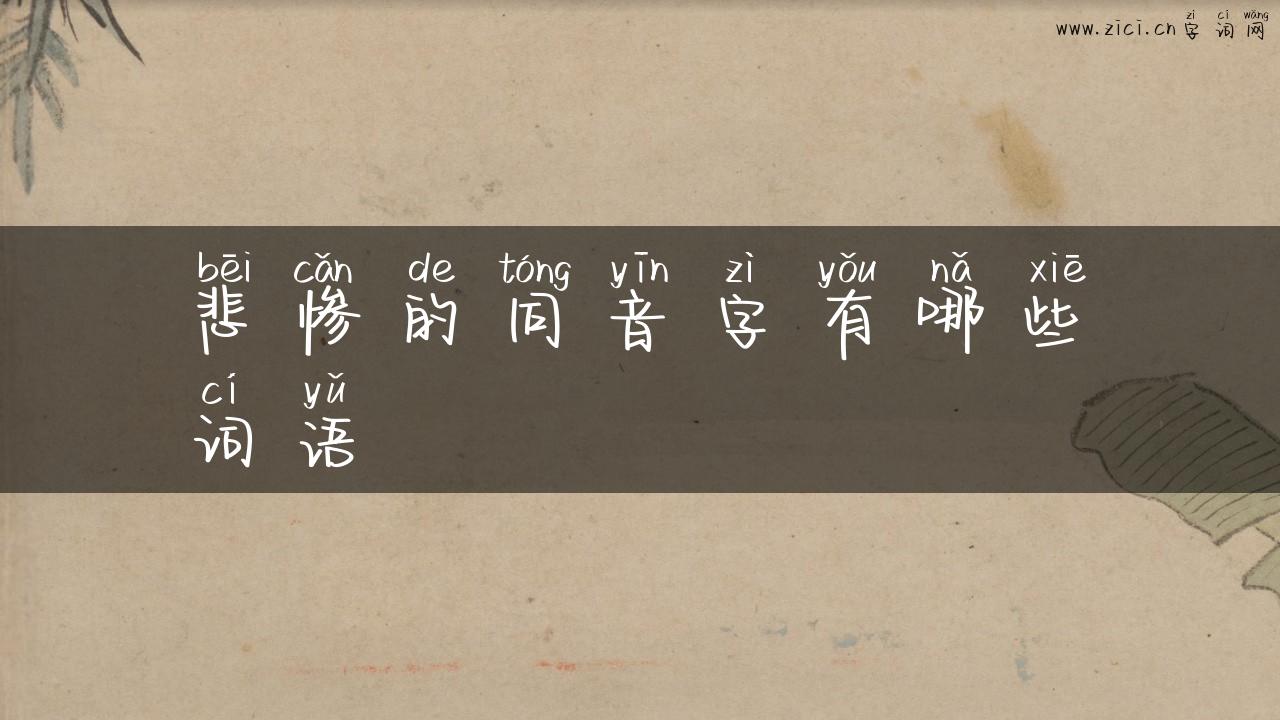 zì cí wǎng
www.zici.cn 字词网
bēi cǎn de tóng yīn zì yǒu nǎ xiē
悲惨的同音字有哪些
cí yǔ
词语